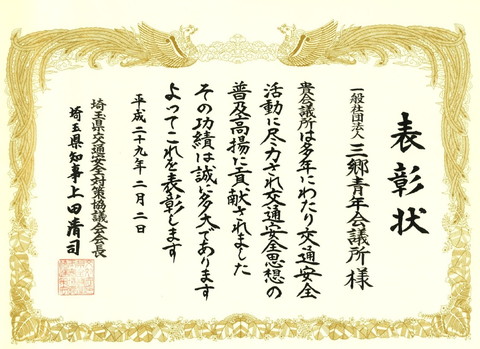 表彰状
一般社団法人 三郷青年会議所様
貴会議所は多年にわたり交通安全
活動に尽力され交通安全思想の
普及高揚に貢献されました
その功績は誠に多大であります
よってこれを表彰します
平成二十九年二月二日
埼玉県交通安全対策協議会会長
埼玉県知事上田清司